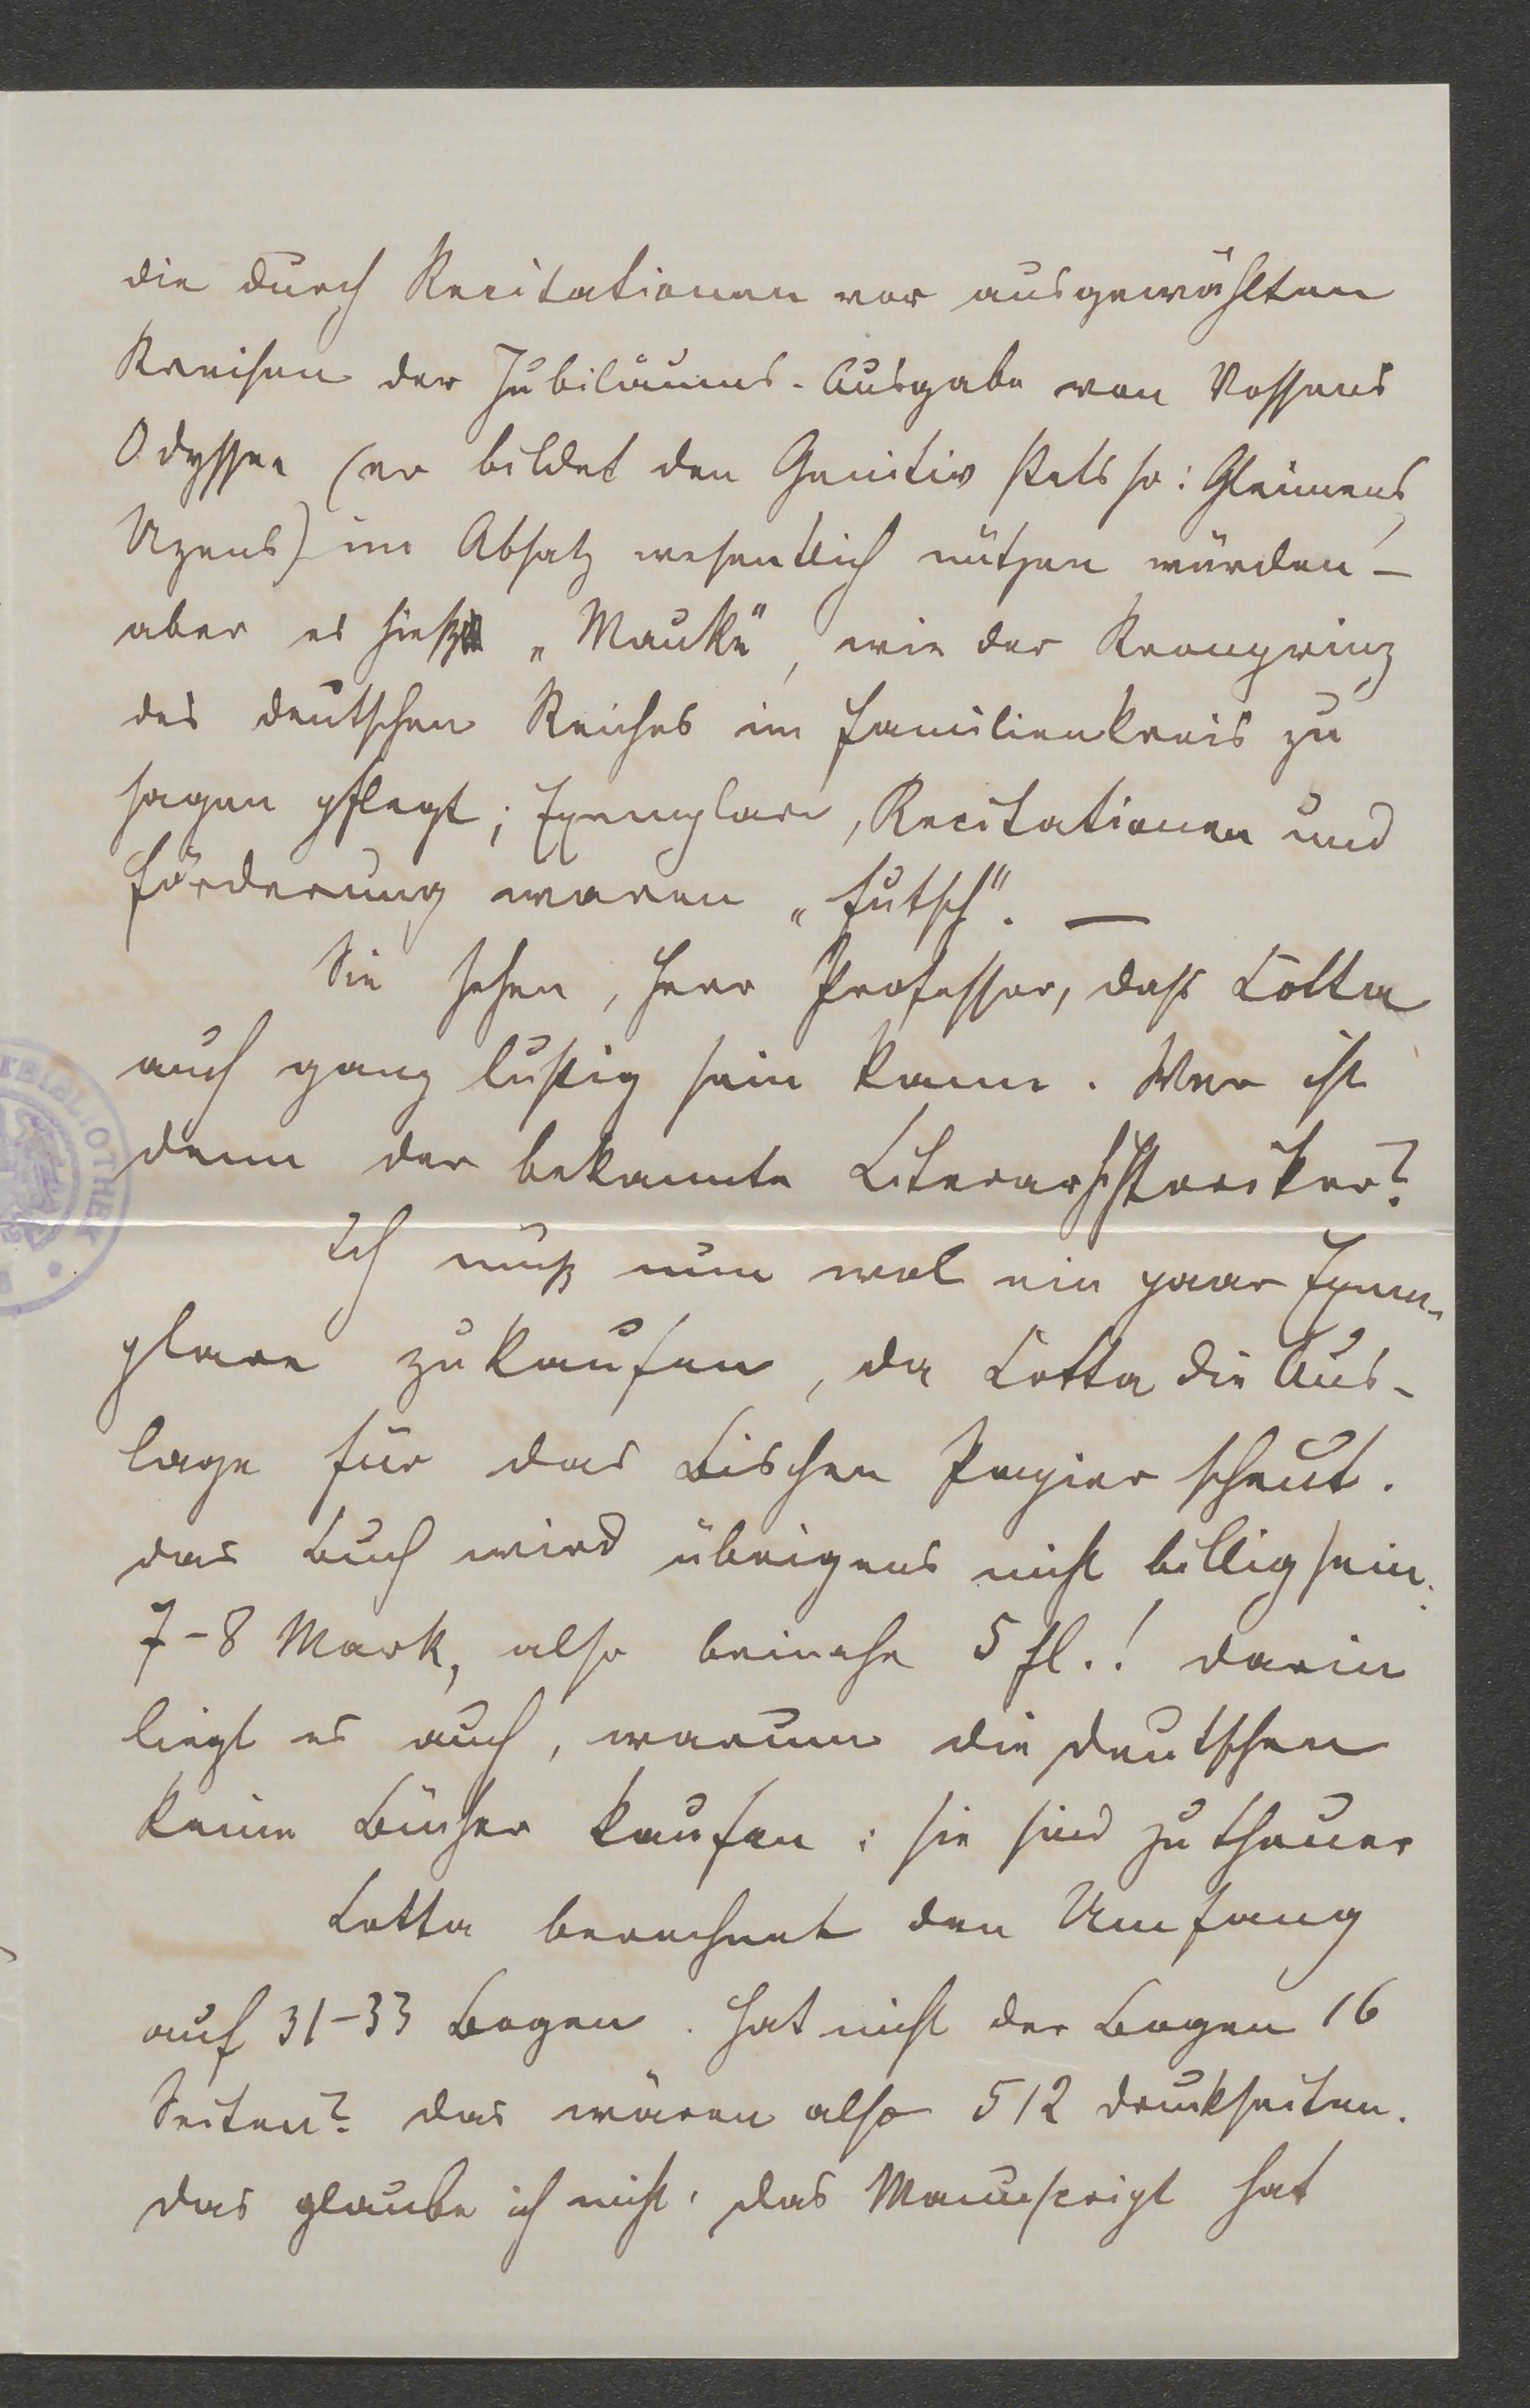 die durch Recitationen vor ausgewählten
Kreisen der Jubiläums-Ausgabe von Vossens
Odyssee (er bildet den Genitiv stets so: Gleimens,
Uzens) im Absatz wesentlich nützen würden –
aber es hieß „Mauke“, wie der Kronprinz
des deutschen Reiches im Familienkreis zu
sagen pflegt; Exemplare, Recitationen und
Förderung waren „futsch“. —
Sie sehen, Herr Professor, daß Cotta
auch ganz lustig sein kann. Wer ist
denn der bekannte Literarhistoriker?
Ich muß nun wol ein paar Exem-
plare zukaufen, da Cotta die Aus-
lage für das Bischen Papier scheut.
das Buch wird übrigens nicht billig sein:
7–8 Mark, also beinahe 5 fl.! darin
liegt es auch, warum die deutschen
keine Bücher kaufen: sie sind zu theuer
Cotta berechnet den Umfang
auf 31–33 Bogen. Hat nicht der Bogen 16
Seiten? das wären also 512 druckseiten.
das glaube ich nicht. das Manuscript hat